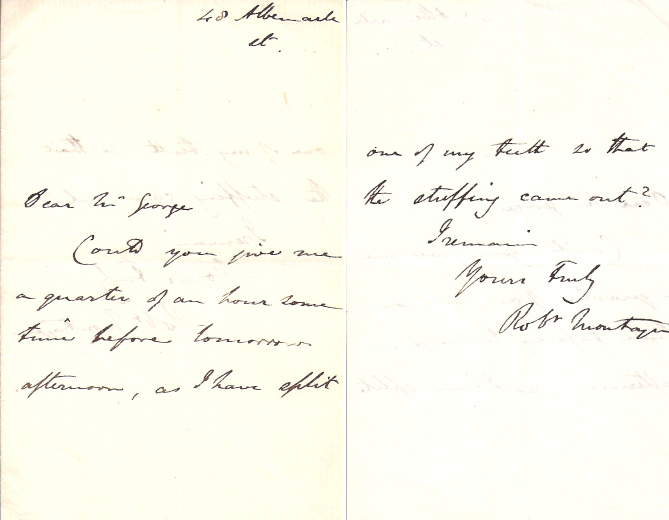 48 Albemarle
St.
Dear Mr George
Could you give me
a quarter of an hour some
time before tomorrow
afternoon, as I have split
one of my teeth so that
the stuffing came out?
I remain
Yours Truly
Robt Montagu